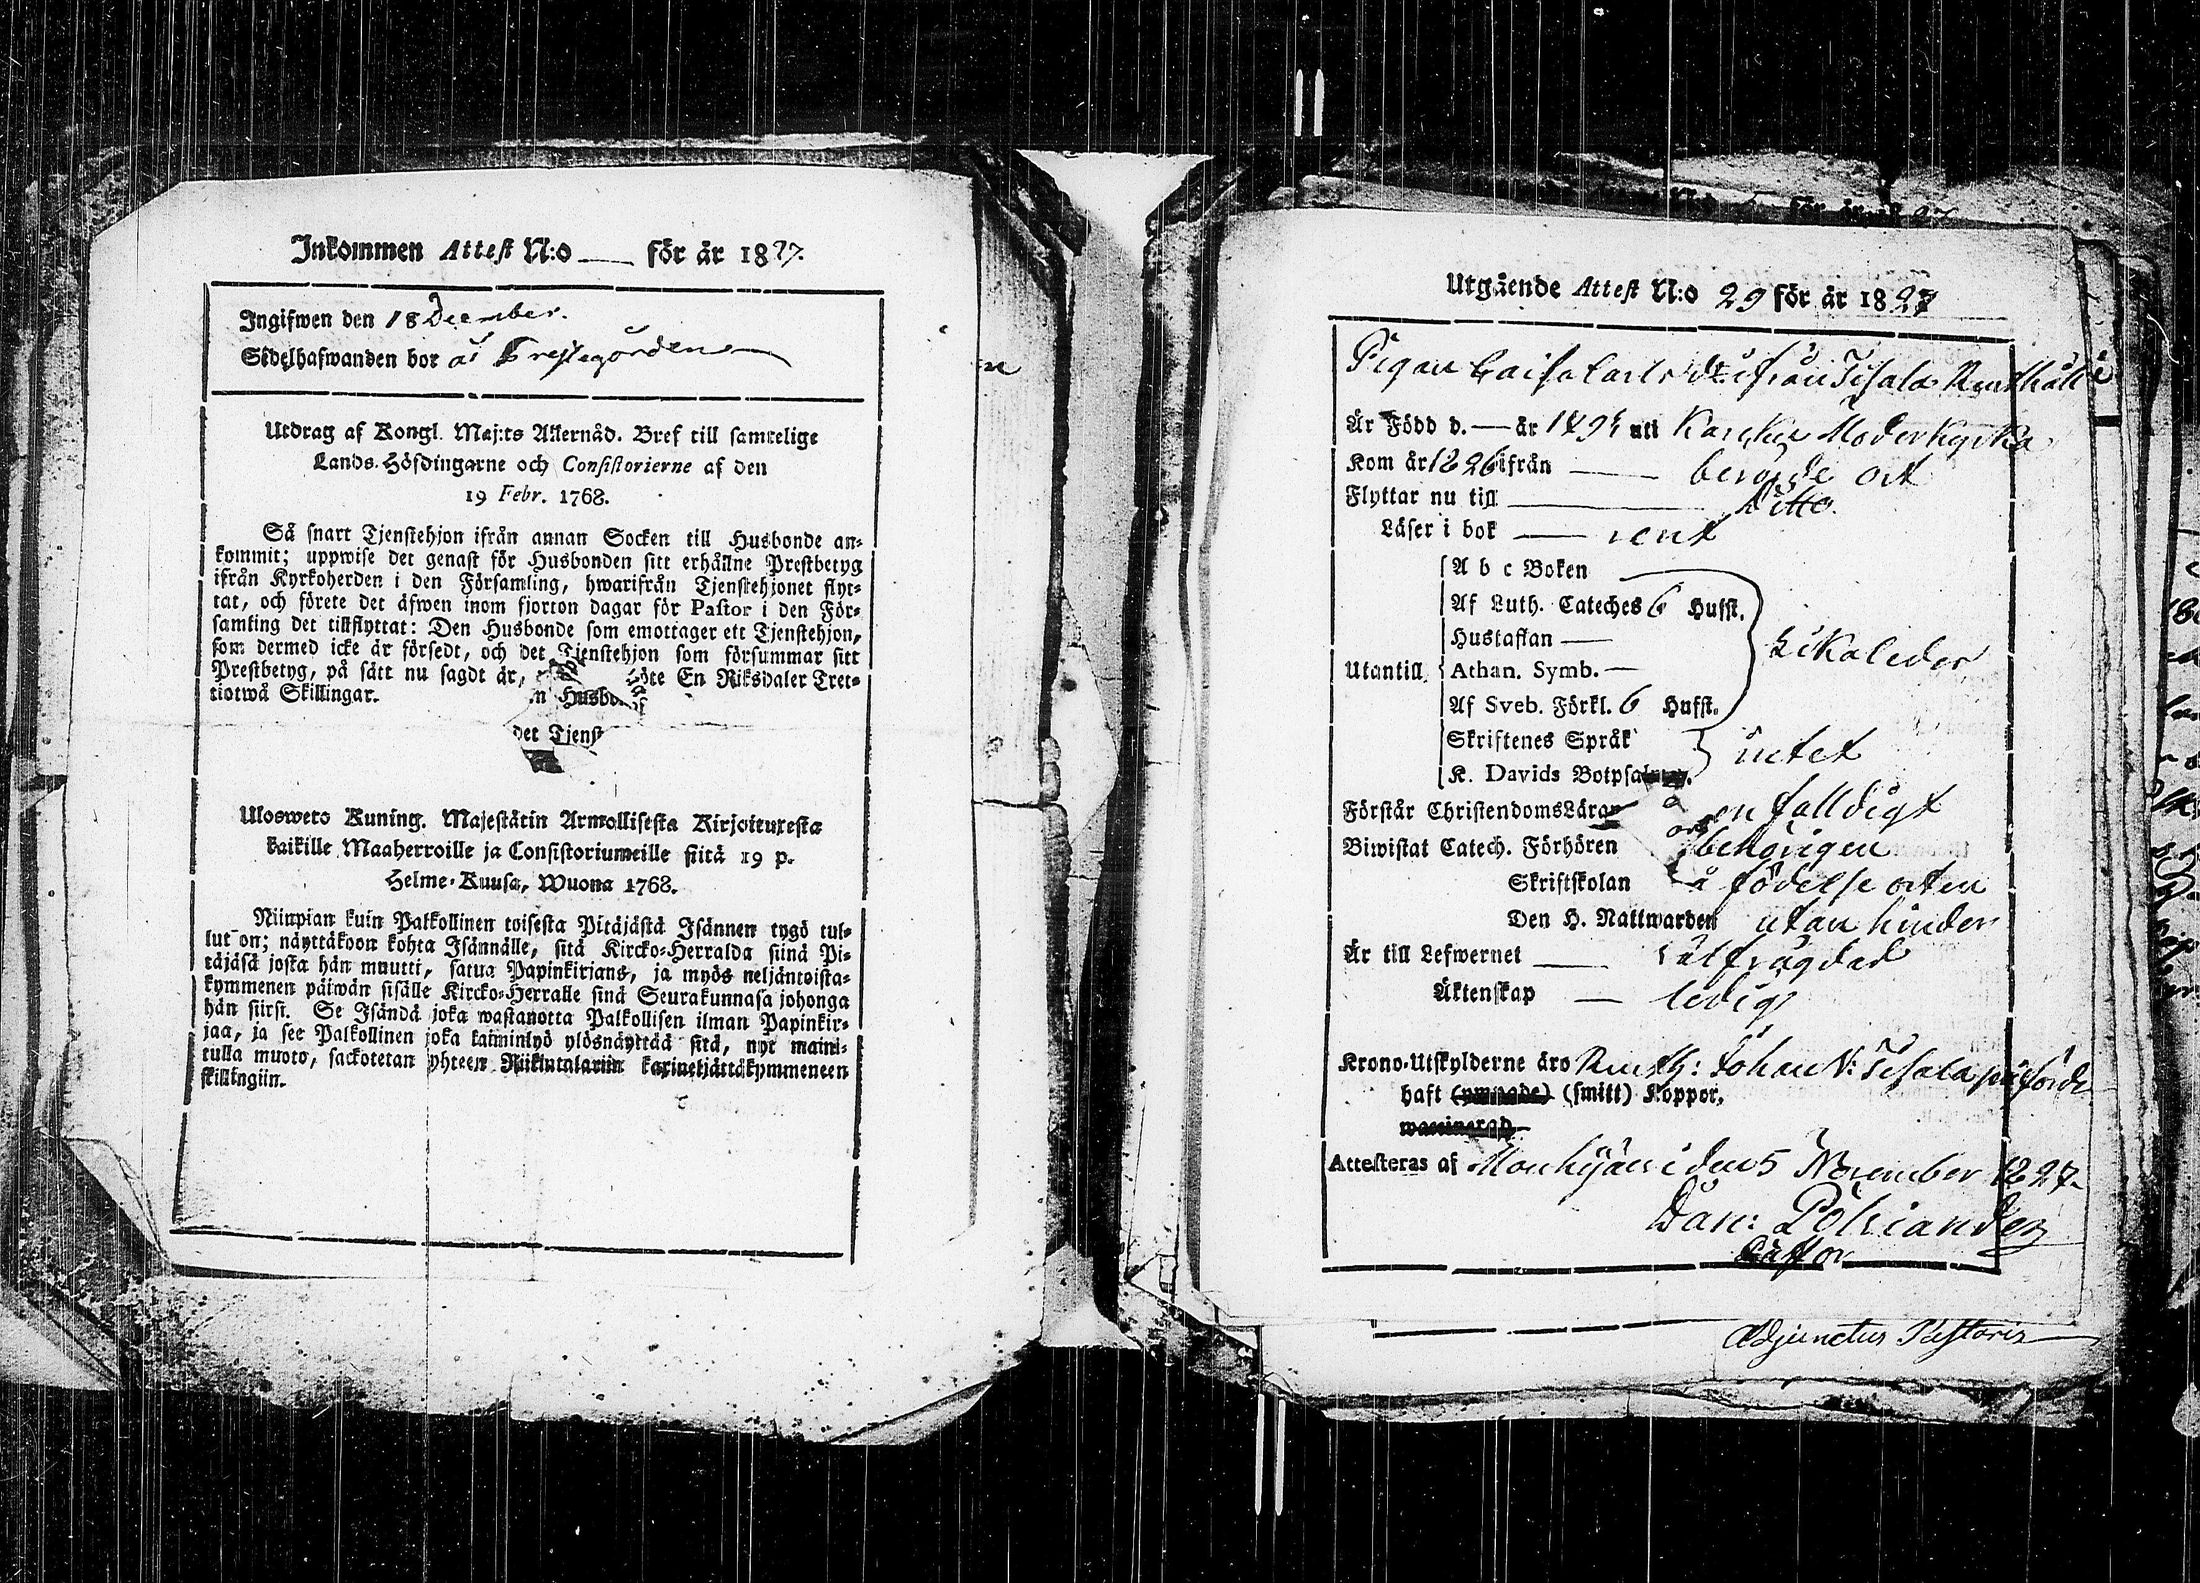 Inkommen Attest N:o ___ för är 1827.
Ingifwen den 18 December.
Sedelhafwanden bor å Prestegården
Utdrag af Kongl. Maj:ts Allernåd. Bref till samtelige
Lands-Höfdingarne och Consistorierne af den
19 Febr. 1768.
Så snart Tjenstehjon ifrån annan Socken till Husbonde an-
kommit; uppwise det genast för Husbonden sitt erhållne Prestbetyg
ifrån Kyrkoherden i den Församling, hwarifrån Tjenstehjonet flyt-
tat, och förete det äfwen inom fjorton dagar för Pastor i den För-
samling det tillflyttat: Den Husbonde som emottager ett Tjenstehjon,
som dermed icke är försedt, och det Tjenstehjon som försummar sitt
Prestbetyg, på sätt nu sagdt är, öte En Riksdaler Tret-
tiotwå Skillingar. n Husbo
det Tjenst
Ulosweto Kuning. Majestätin Armollisesta Kirjoituxesta
kaikille Maaherroille ja Consistoriumeille siitä 19 p.
Helme-Kuusa, Wuona 1768.
Niinpian kuin Palkollinen toisesta Pitäjästä Isännen tygö tul-
lut on; näyttäkoon kohta Isännälle, sitä Kircko-Herralda siinä Pi-
täjäsä josta hän muutti, satua Papinkirjans, ja myös neljäntoista-
kymmenen päiwän sisälle Kircko-Herralle sinä Seurakunnasa johonga
hän siirsi. Se Isändä joka wastanotta Palkollisen ilman Papinkir-
jaa, ja see Palkollinen joka laiminlyö ylösnäyttää sitä, nyt maini-
tulla muoto, sackotetan yhteen Riikintalariin kaxinetjättäkymmeneen
skillingiin.
Utgående Attest N:o 29 för är 1827
Pigan Caisa Carls dr ifrån Tesala Rusthåll
Är Född d. — är uti Karcku Moderkyrka
Kom år 1826 ifrån — berörde ort
Flyttar nu till — Ditto.
Läser i bok — rent
Utantill
A b c Boken
Af Luth. Cateches 6 Hufst.
Hustaflan —
Athan. Symb. —
Af Sveb. Förkl. 6 Hufst.
Likaledes
Skriftenes Språk
K. Davids Botpsalmer.
intet
Förstår ChristendomsLäran enfalldigt
Biwistat Catech. Förhören behörigen
Skriftskolan å födelse orten
Den H. Nattwarden utan hinder
Är till Lefwernet — välfrägdad
Äktenskap — ledig
Krono-Utskylderne äro Rusth: Johan Tesala påförde
haft (ympade) (smitt) Koppor.
waccinerad
Attesteras af Mouhijärvi den 5 November 1827.
Dan: Polviander
Pastor
Adjunctus Pastoris